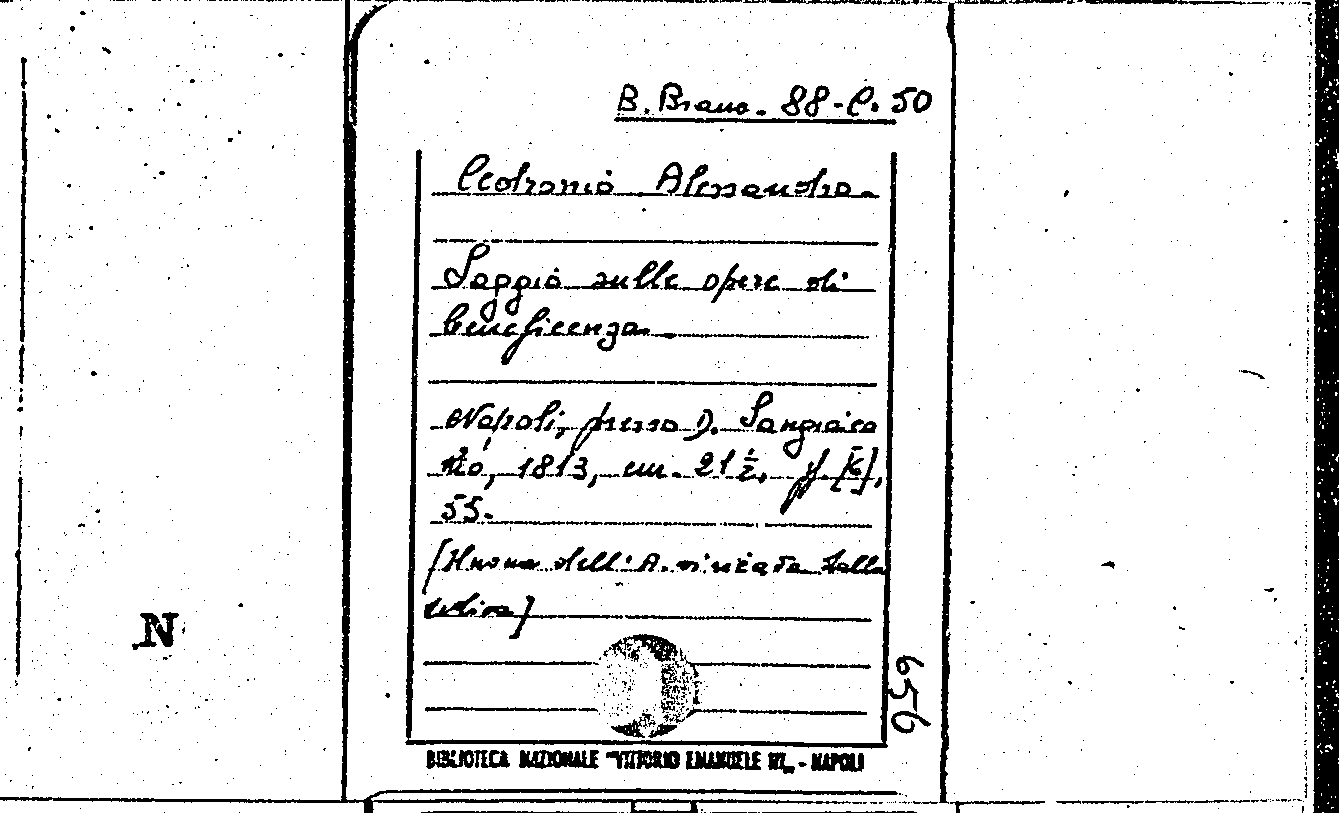 B. Branc. 88-C. 50
Cedronio Alessandro.
Saggio sulle opere di
beneficenza.
Napoli, presso D. Sangiaco
mo, 1813, cm. 21 ½, pp. [6],
55.
[Il nome dell'A. si ricava dalla
dedica]
N
656
BIBLIOTECA NAZIONALE "VITTORIO EMANUELE III" - NAPOLI